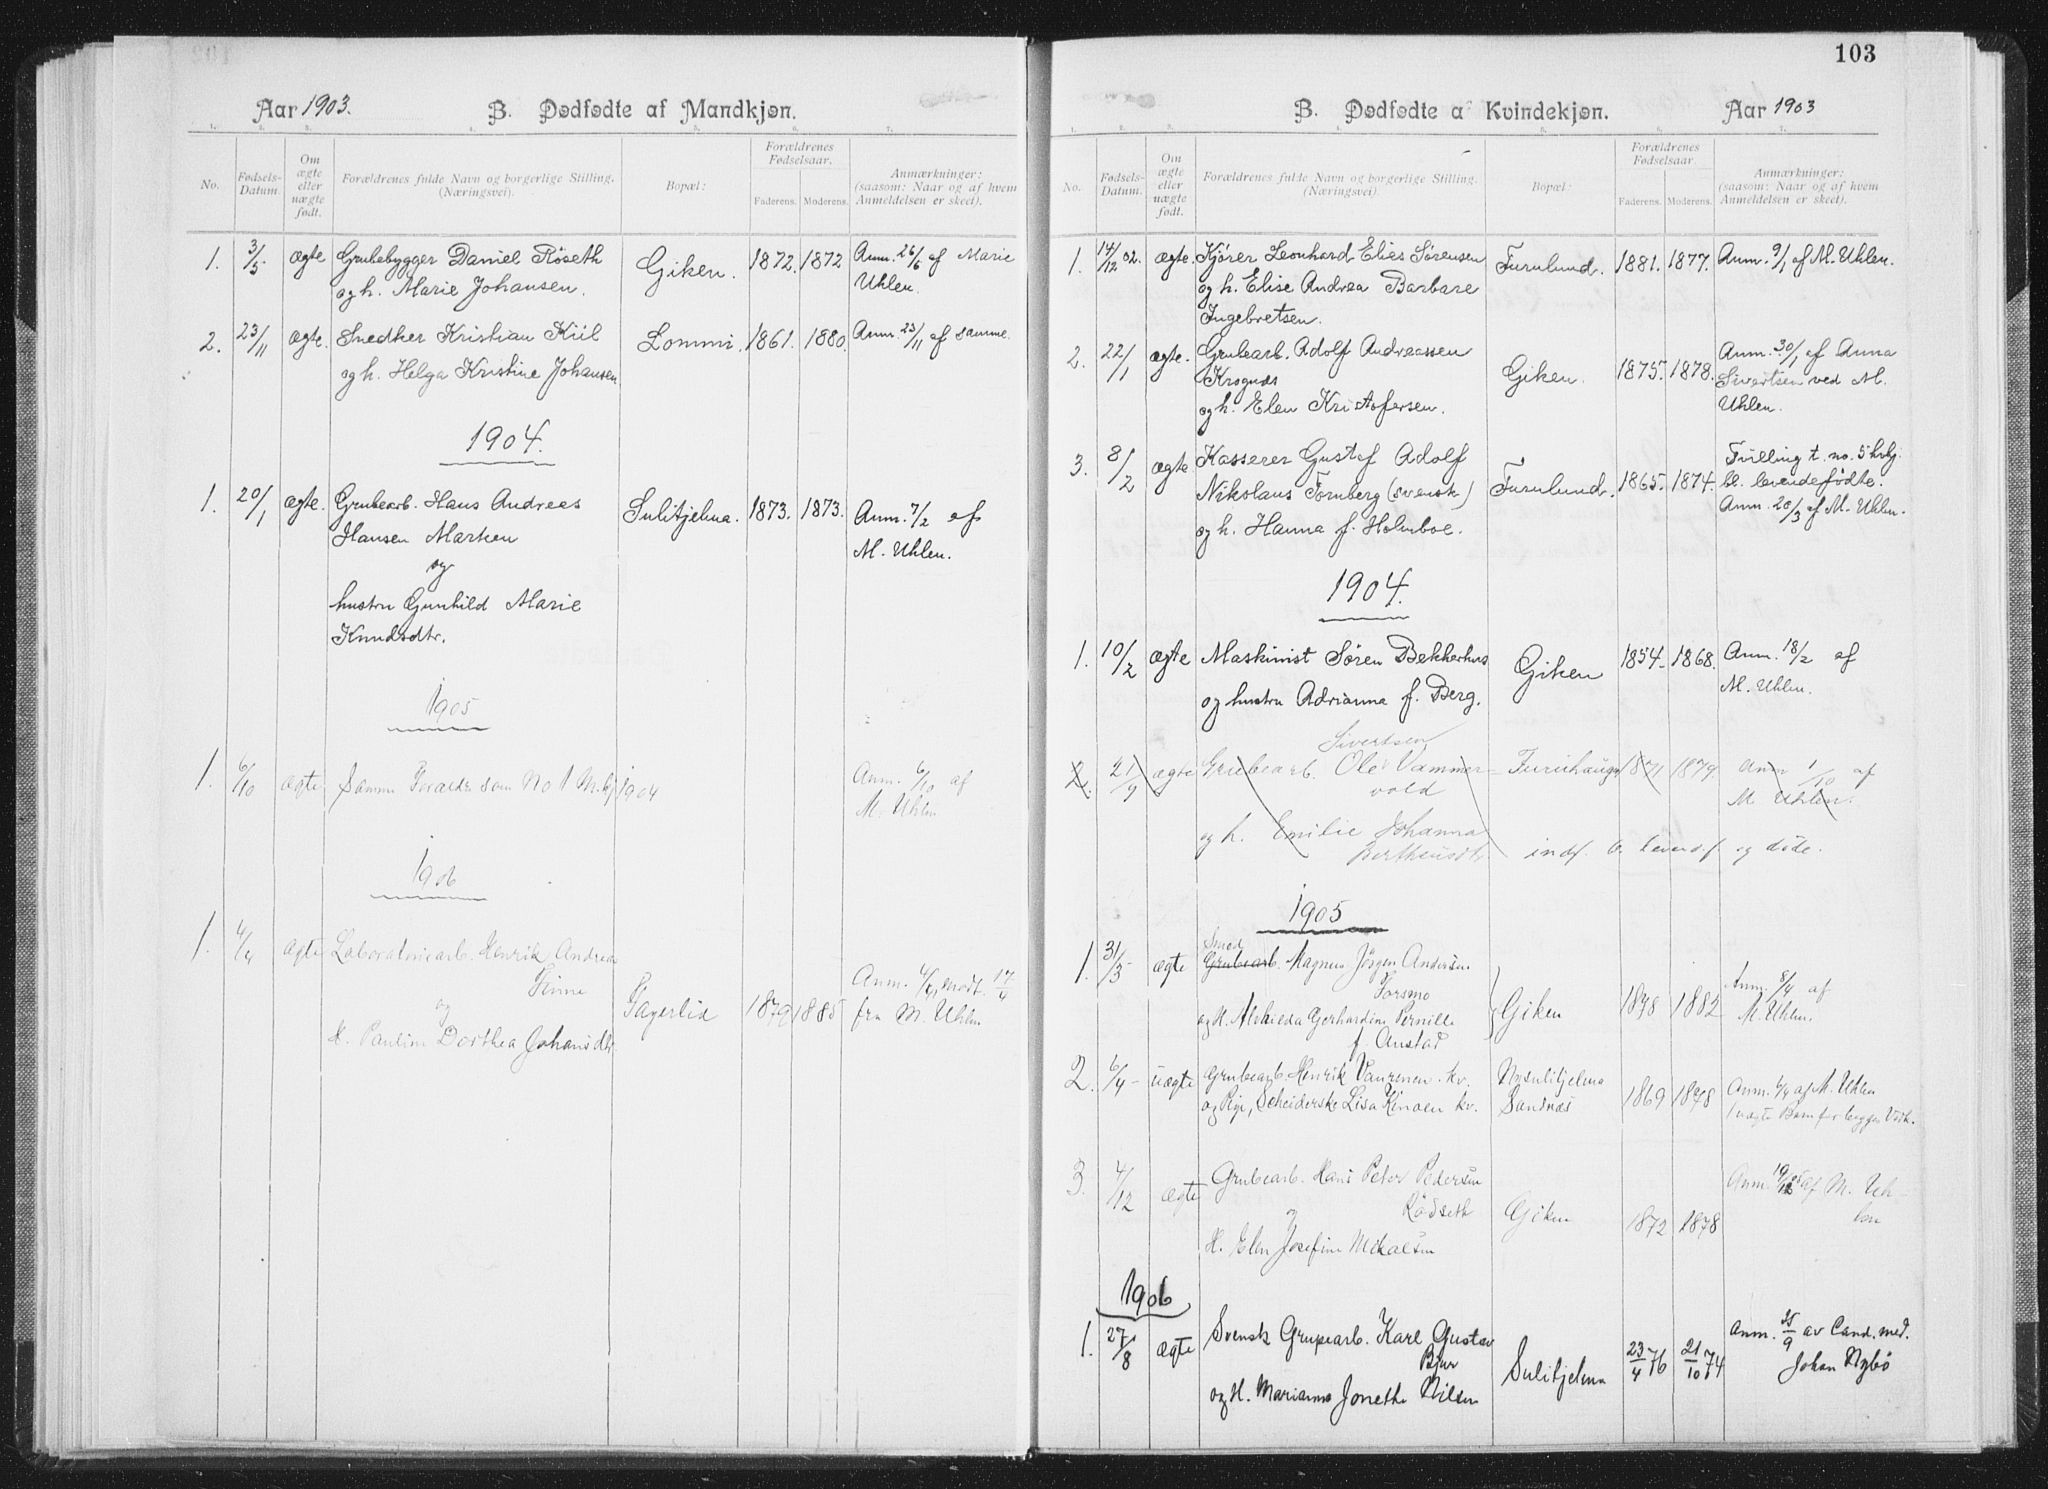 Aar 1903. B. Dødfødte af Mandkjøn.
1. 2. 3. 4. 5. 6. 7.
No. Fødsels-Datum. Om ægte eller uægte født. Forældrenes fulde Navn og borgerlige Stilling. (Næringsvei). Bopæl: Forældrenes Fødselsaar. Faderens. Moderens. Anmærkninger: (saasom: Naar og af hvem Anmeldelsen er skeet).
1. 3/5 ægte Grubebygger Daniel Röseth Giken. 1872. 1872 Anm. 26/6 af Marie
og h. Marie Johansen. Uhlen.
2. 23/11 ægte. Snedker Kristian Kiil Lommi. 1861. 1880. Anm. 23/11 af samme.
og h. Helga Kristine Johansen
1904.
1. 20/1 ægte. Grubearb. Hans Andreas Sulitjelma. 1873. 1873. Anm. 7/2 af
Hansen Marken M. Uhlen.
og
hustru Gunhild Marie
Knudsdtr.
1905
1. 6/10 ægte Samme Forældr. som No 1 M.kj 1904 Anm. 6/10 af
M. Uhlen
1906
1. 4/4 ægte Laboratoriearb. Henrik Andreas
Finne
og Fagerlid 1879 1885 Anm. 4/4, modt. 17/4
H. Pauline Dorthea Johansdtr. fra M. Uhlen
103
B. Dødfødte a Kvindekjøn. Aar 1903
1. 2. 3. 4. 5. 6. 7.
No. Fødsels-Datum. Om ægte eller uægte født. Forældrenes fulde Navn og borgerlige Stilling. (Næringsvei). Bopæl: Forældrenes Fødselsaar. Faderens. Moderens. Anmærkninger: (saasom: Naar og af hvem Anmeldelsen er skeet).
1. 14/12 02. ægte. Kjører Leonhard Elies Sørensen Furulund. 1881. 1877. Anm. 9/1 af M. Uhlen.
og h. Elise Andrea Barbare
Ingebretsen.
2. 22/1 ægte. Grubearb. Adolf Andreassen Giken. 1875. 1878. Anm. 30/1 af Anna
Krognæs Sivertsen ved M.
og h. Elen Kristofersen. Uhlen.
3. 8/2 ægte Kasserer Gustaf Adolf Furulund. 1865. 1874. Tvilling t. no. 5 kvkj.
Nikolaus Tornberg (svensk) bl. levendefødte.
og h. Hanna f. Holmboe. Anm. 20/3 af M. Uhlen.
1904.
1. 10/2 ægte Maskinist Søren Bekkerhus Giken 1854. 1868. Anm. 18/2 af
og hustru Adrianna f. Berg. M. Uhlen.
Sivertsen
2. 21/9 ægte Grubearb. Ole Vammer- Furuhaug 1871 1879 Anm 1/10 af
vold M Uhlen.
og h. Emilie Johanna
Bertheusdtr. indf. b. levend.f og døde.
1905
Smed
1. 31/3 ægte Grubearb. Magnus Jörgen Andersen
Forsmo
og H. Alvhilda Gerhardine Pernille Giken 1878 1882 Anm. 8/4 af
f. Anstad M. Uhlen.
2. 6/4 uægte Grubearb. Henrik Vanrenen. kv. Nysulitjelma 1869 1878 Anm. 6/4 af M. Uhlen
og Pige, Lisa kv. Sandnæs 1 uægte Barn for begges Vedk.
3. 4/12 ægte Grubearb. Hans Peter Pedersen Giken 1872 1878 Anm. 19/12 05 af M. Uh-
Rödseth len
og
H. Elen Josefine Mikalsen
1906
1. 27/8 ægte Svensk Grupearb. Karl Gustav Sulitjelma 23/4 76 21/10 74 Anm. 25/9 av Cand. med.
Bjur Johan Nybø
og H. Marianna Jonethe Nilsen